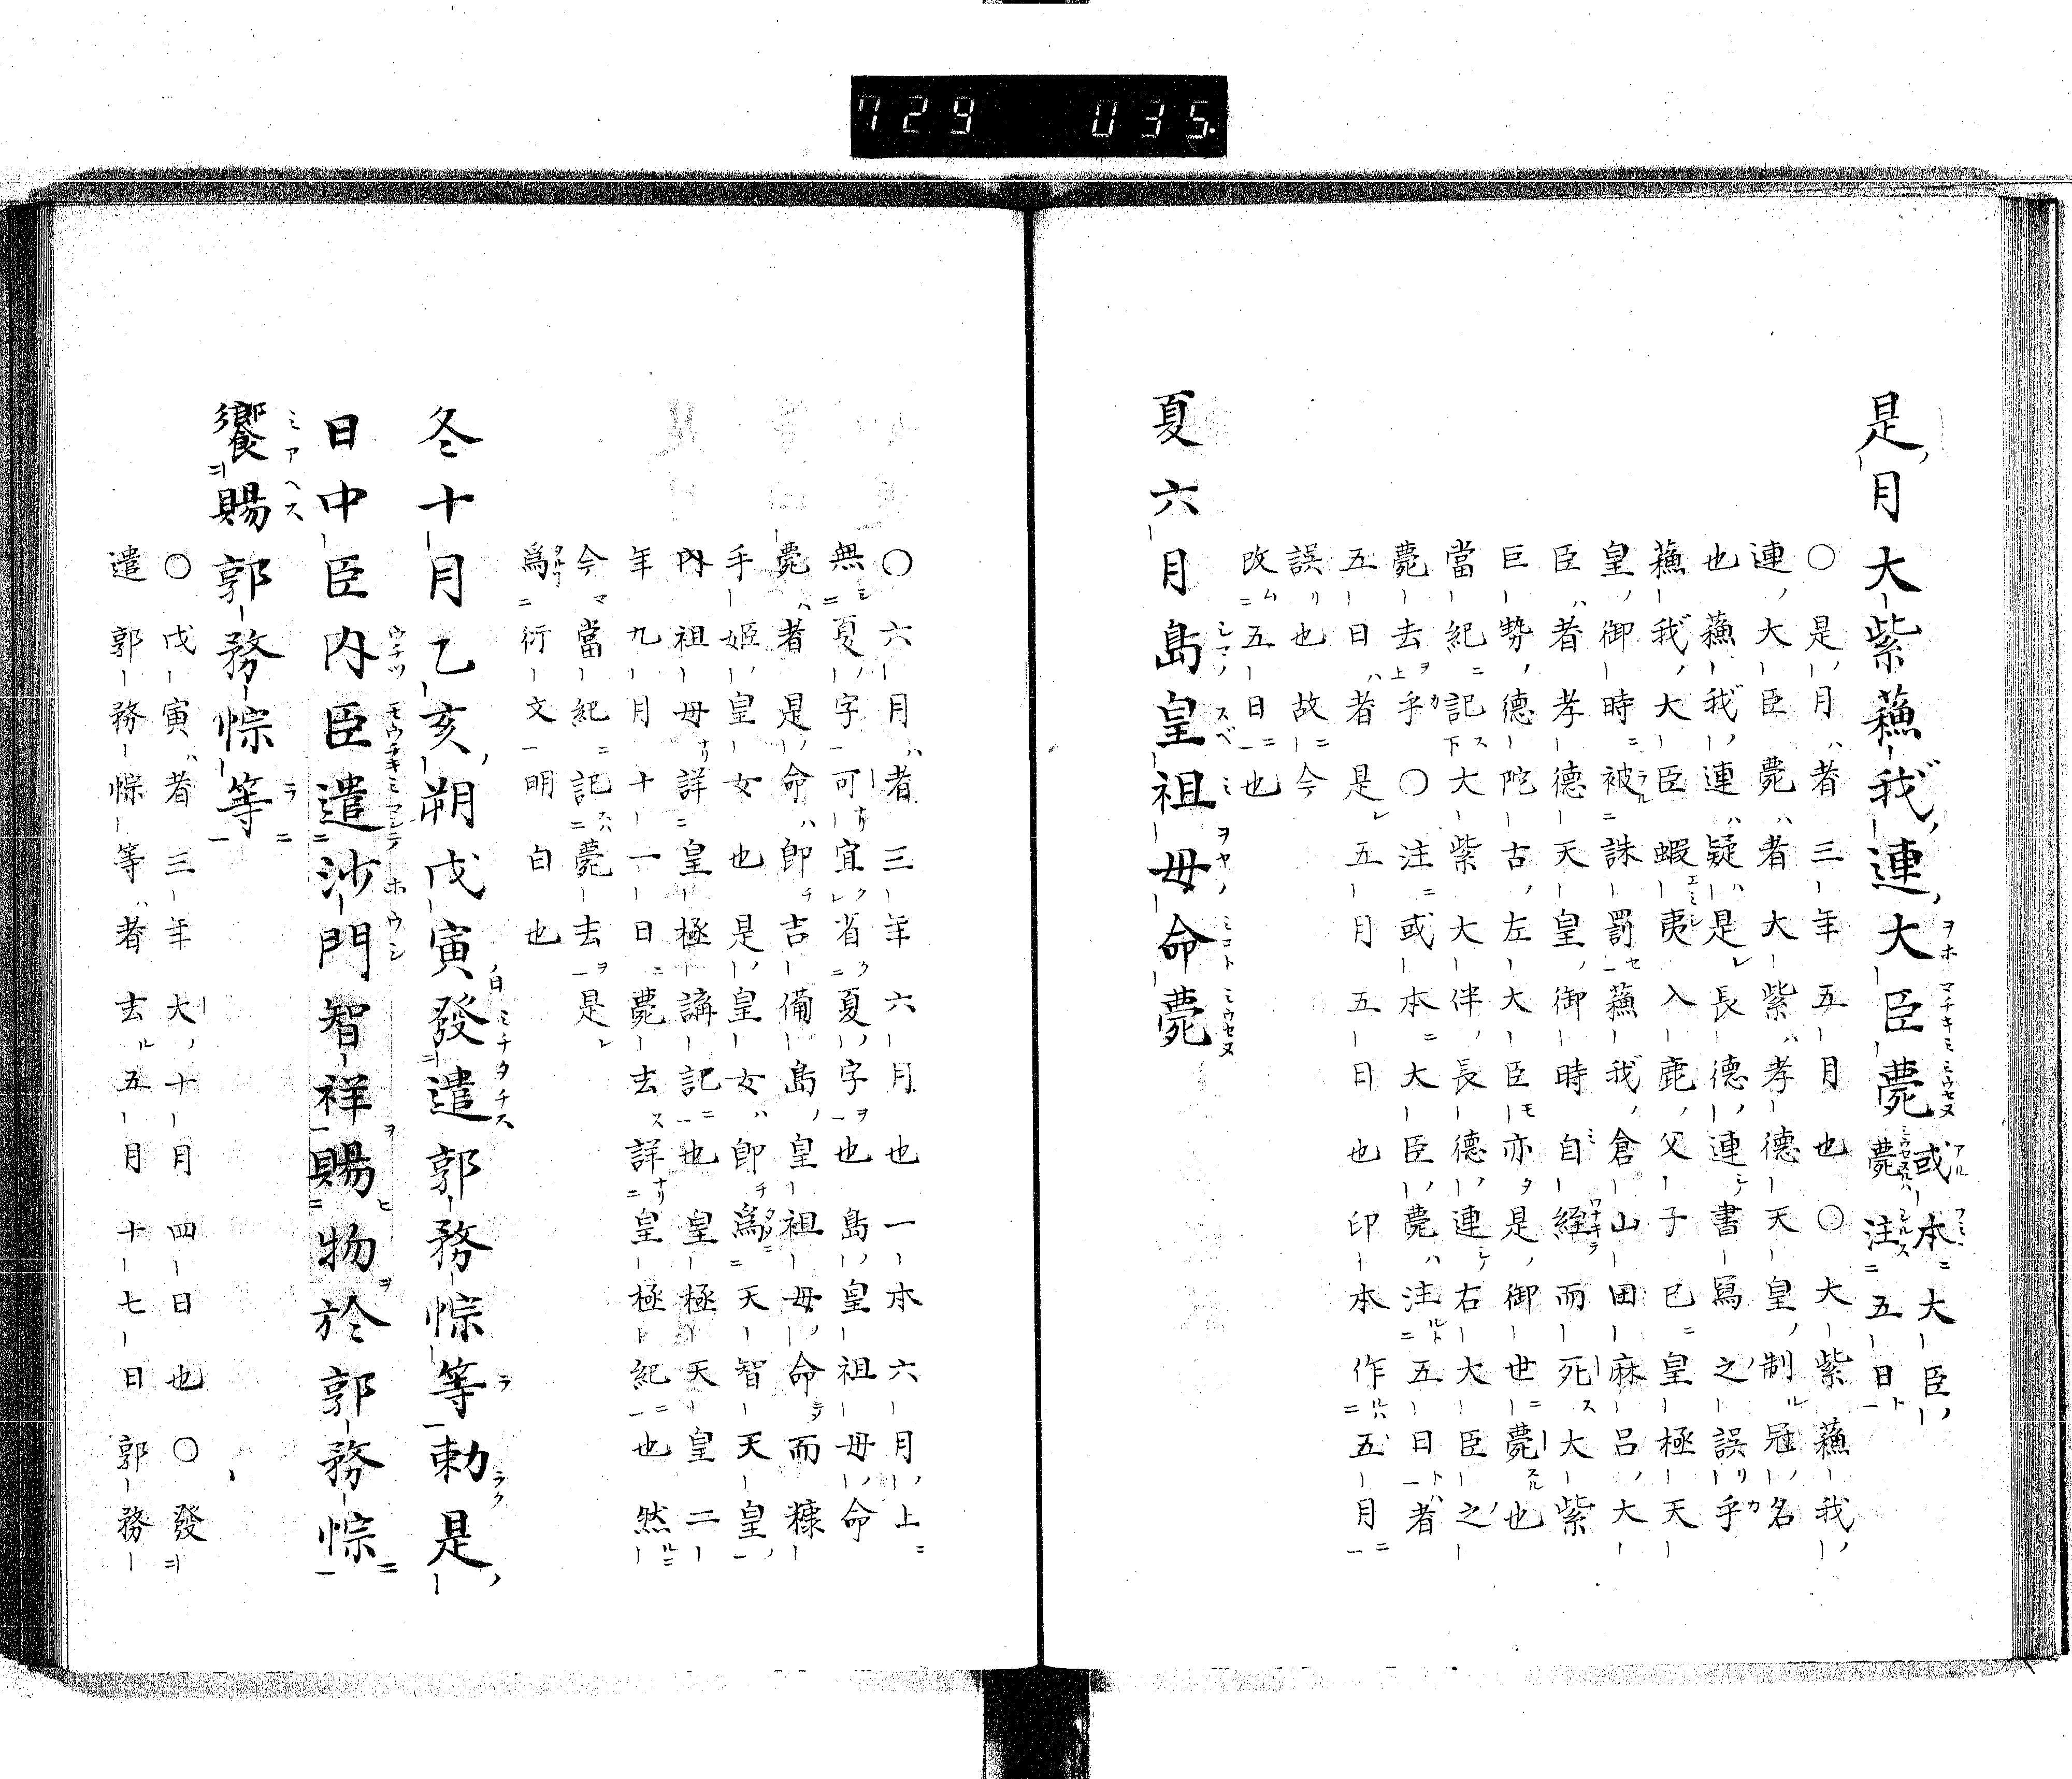 729 035.
是月大紫蘓我連大臣薨或本大臣
薨注五日
〇是月者三年五月也〇大紫蘓我
連大臣薨者大紫孝德天皇制冠名
也蘓我連疑是長德連書寫之誤乎
蘓我大臣蝦夷入鹿父子已皇極天
皇御時被誅罰蘓我倉山田麻呂大
臣者孝德天皇御時自經而死大紫
巨勢德陀古左大臣亦是御世薨也
當紀記大紫大伴長德連右大臣之
薨去乎〇注或本大臣薨注五日者
五日者是五月五日也印本作五月
誤也故今
改五日也
夏六月島皇祖母命薨
〇六月者三年六月也一本六月上
無夏字可宜省夏字也島皇祖母命
薨者是命即吉備島皇祖母命而糠
手姫皇女也是皇女即爲天智天皇
内祖母詳皇極講記也皇極天皇二
年九月十一日薨去詳皇極紀也然
今當紀記薨去是
爲衍文明白也
冬十月乙亥朔戊寅發遣郭務悰等勅是
日中臣内臣遣沙門智祥賜物於郭務悰
饗賜郭務悰等
〇戊寅者三年大十月四日也〇發
遣郭務悰等者去五月十七日郭務